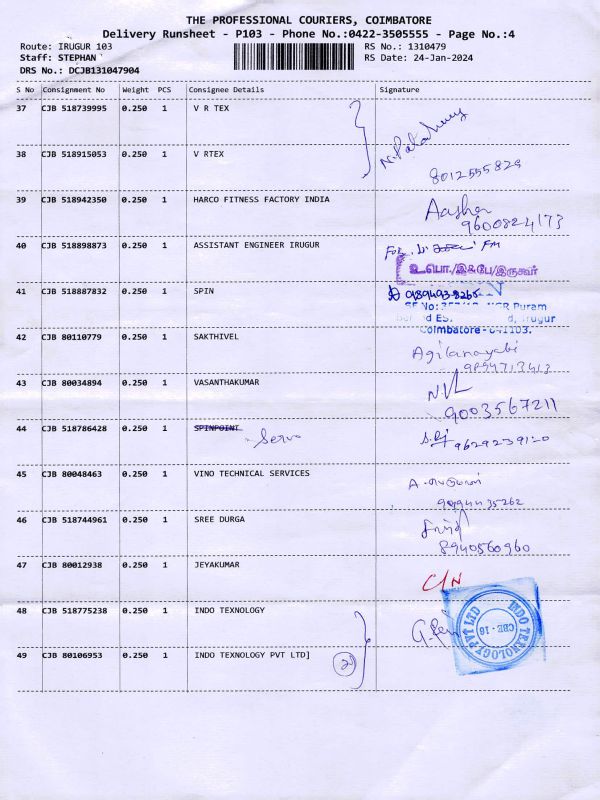 THE PROFESSIONAL COURIERS, COIMBATORE
Delivery Runsheet - P103 - Phone No.:0422-3505555 - Page No.:4
Route: IRUGUR 103
RS No.: 1310479
Staff: STEPHAN
RS Date: 24-Jan-2024
DRS No.: DCJB131047904
S No Consignment No Weight PCS Consignee Details Signature
37 CJB 518739995 0.250 1 V R TEX
38 CJB 518915053 0.250 1 V RTEX
8012555829
39 CJB 518942350 0.250 1 HARCO FITNESS FACTORY INDIA
9600824173
40 CJB 518898873 0.250 1 ASSISTANT ENGINEER IRUGUR
உ.பொ./இ&பே/இருகூர்
41 CJB 518887832 0.250 1 SPIN
Puram
Irugur
Coimbatore - 641103.
42 CJB 80110779 0.250 1 SAKTHIVEL
43 CJB 80034894 0.250 1 VASANTHAKUMAR
9003567211
44 CJB 518786428 0.250 1 SPINPOINT
Servo
45 CJB 80048463 0.250 1 VINO TECHNICAL SERVICES
46 CJB 518744961 0.250 1 SREE DURGA
8940560960
47 CJB 80012938 0.250 1 JEYAKUMAR
C/N
48 CJB 518775238 0.250 1 INDO TEXNOLOGY
INDO TEKNOLOGY PVT LTD
CBE - 16
49 CJB 80106953 0.250 1 INDO TEXNOLOGY PVT LTD]
2